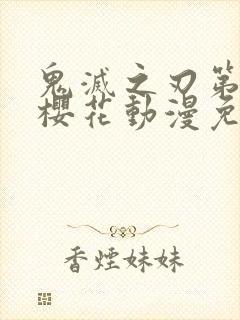 鬼滅之刃第
櫻花動漫免
香煙妹妹